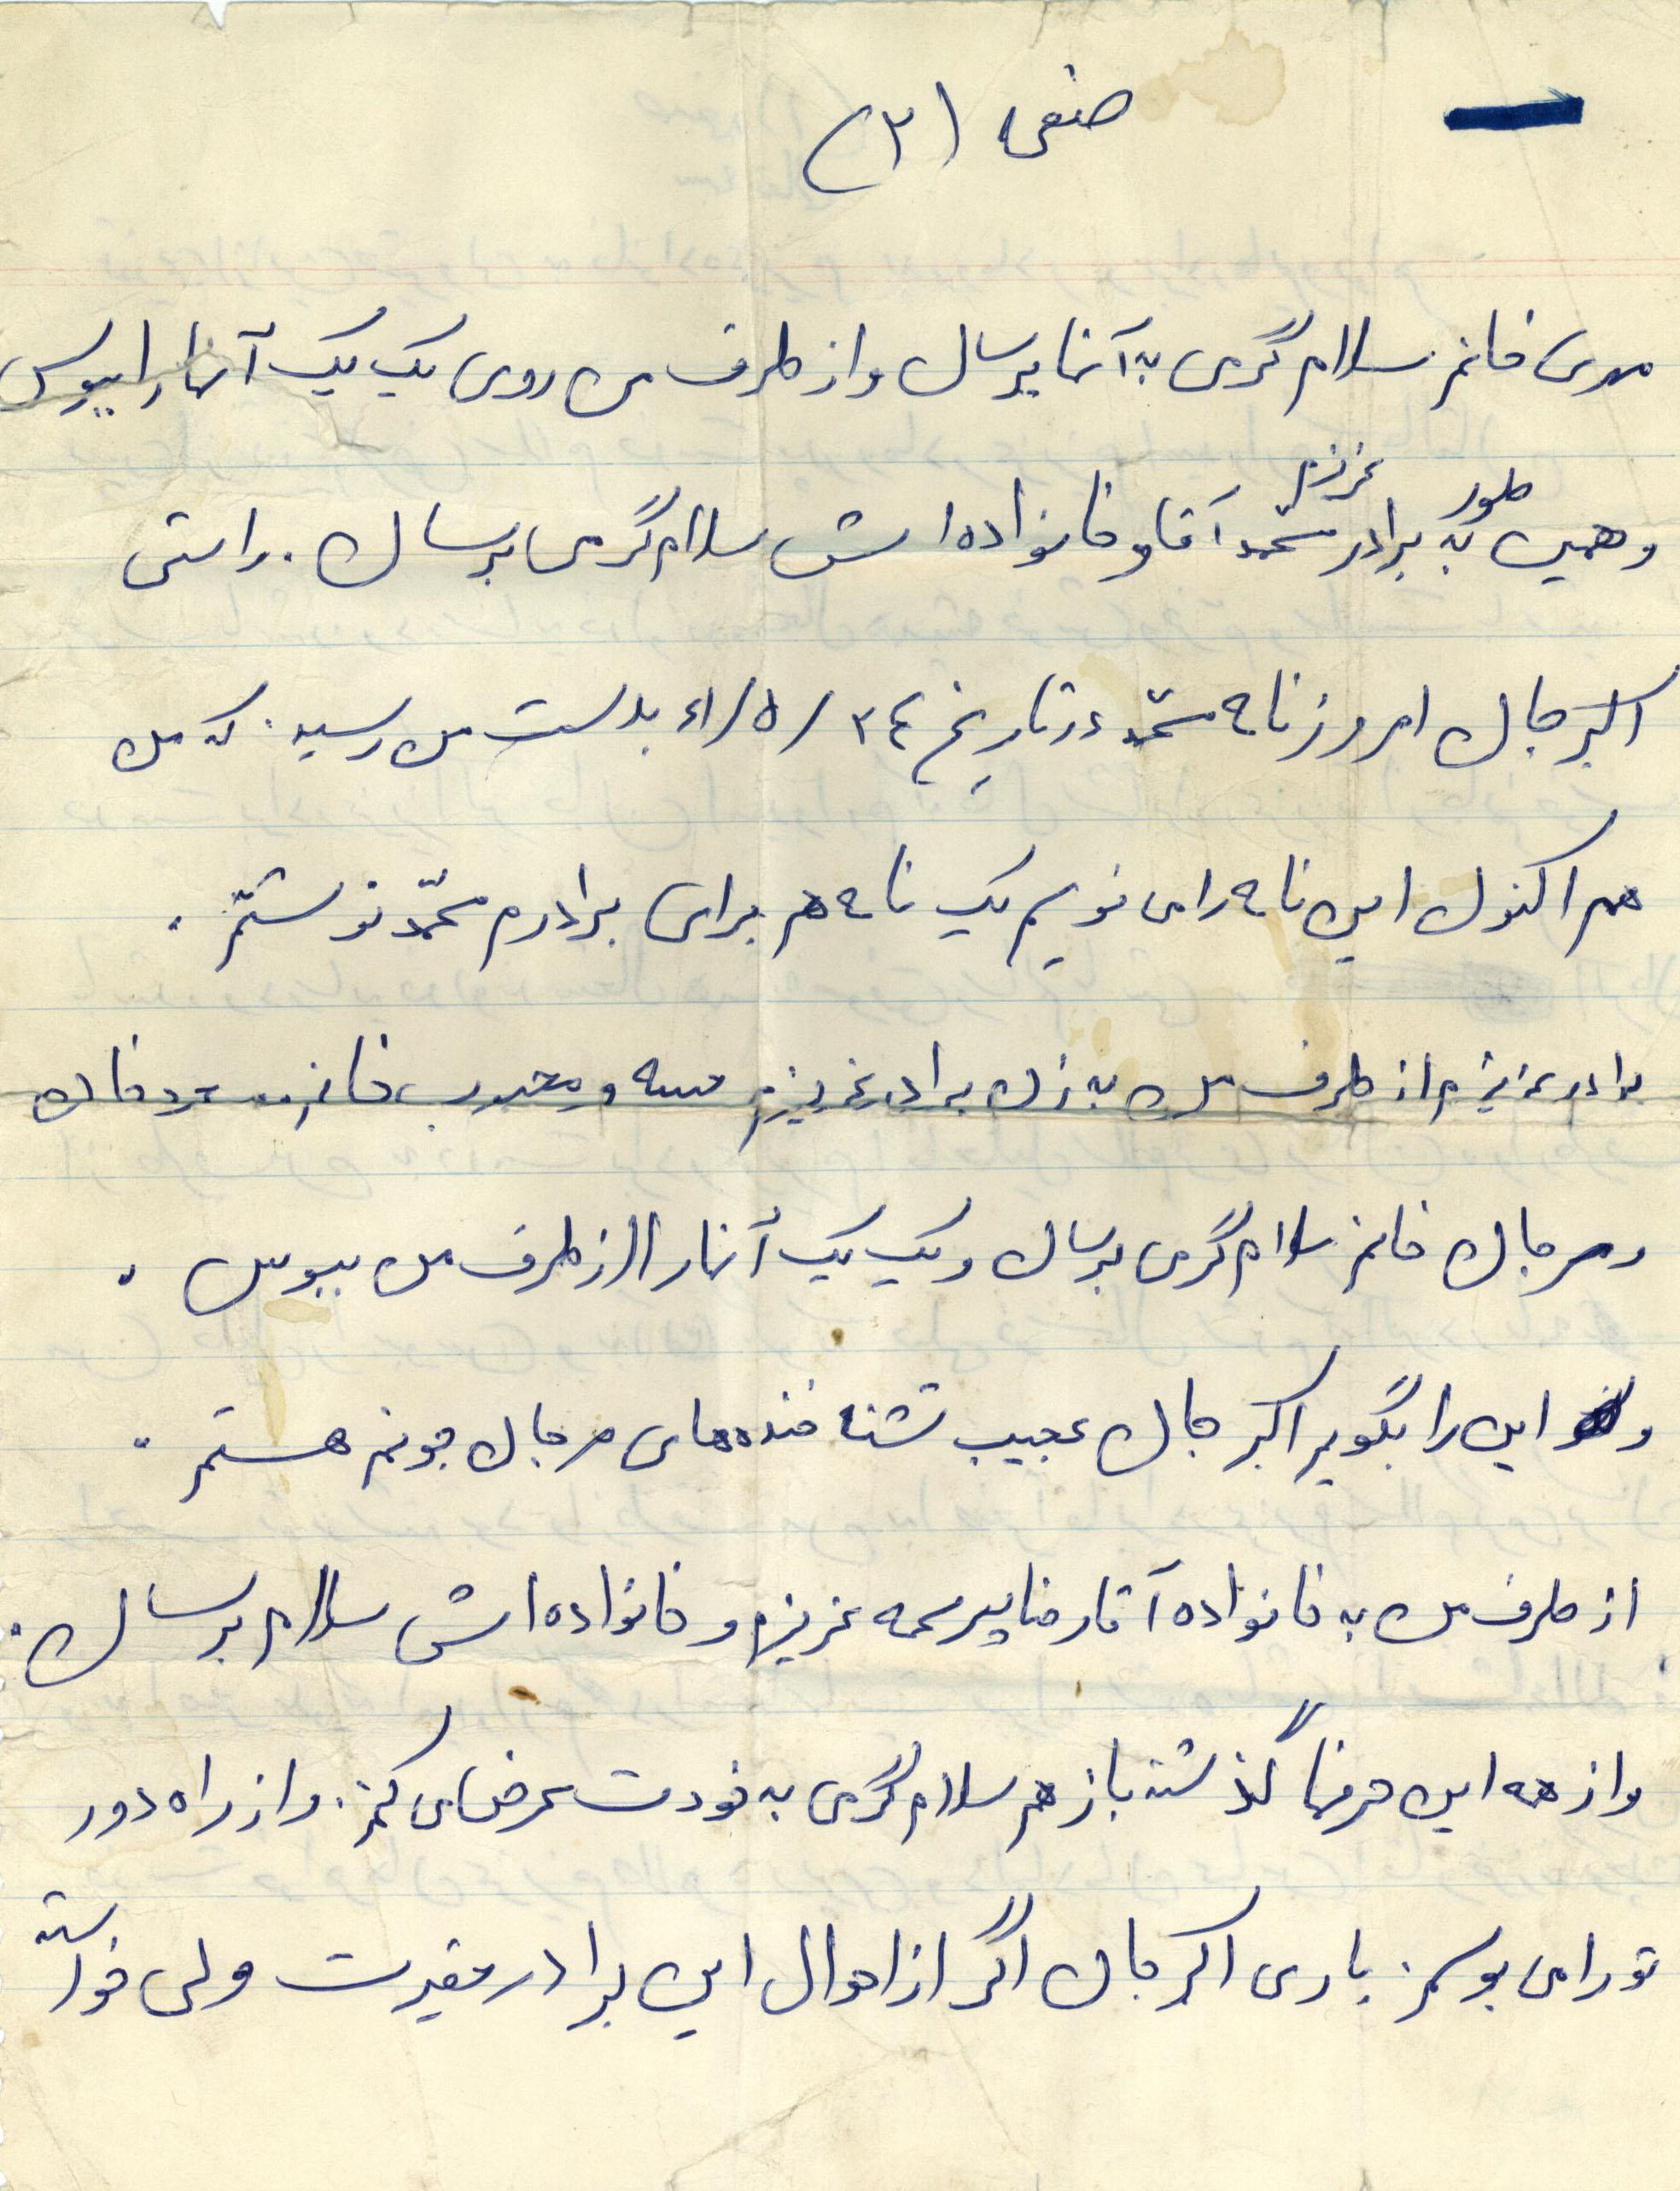 صفحه (۲)
مهری خانم سلام گرمی به آنها برسان و از طرف من روی یک یک آنها را ببوس
و همین طور به برادر عزیزم محمد آقا و خانواده اش سلام گرمی برسان . راستی
اکبر جان امروز نامه محمد در تاریخ ۲٤ /٥/ بدست من رسید . که من
هم اکنون این نامه را می نویسم یک نامه هم برای برادرم محمّد نوشتم .
برادر عزیزم از طرف من به زن برادر عزیزم و محبوب خانم مسعود خان
و مرجان خانم سلام گرمی برسان و یک یک آنها را از طرف من ببوس .
و این را بگویم اکبر جان عجیب تشنه خنده های مرجان جونم هستم .
از طرف من به خانواده آقا رضا پسر عمه عزیزم و خانواده اش سلام برسان .
و از همه این حرفها گذشته باز هم سلام گرمی به خودت عرض می کنم . و از راه دور
تو را می بوسم . باری اکبر جان اگر از احوال این برادر حقیرت ولی خواسته